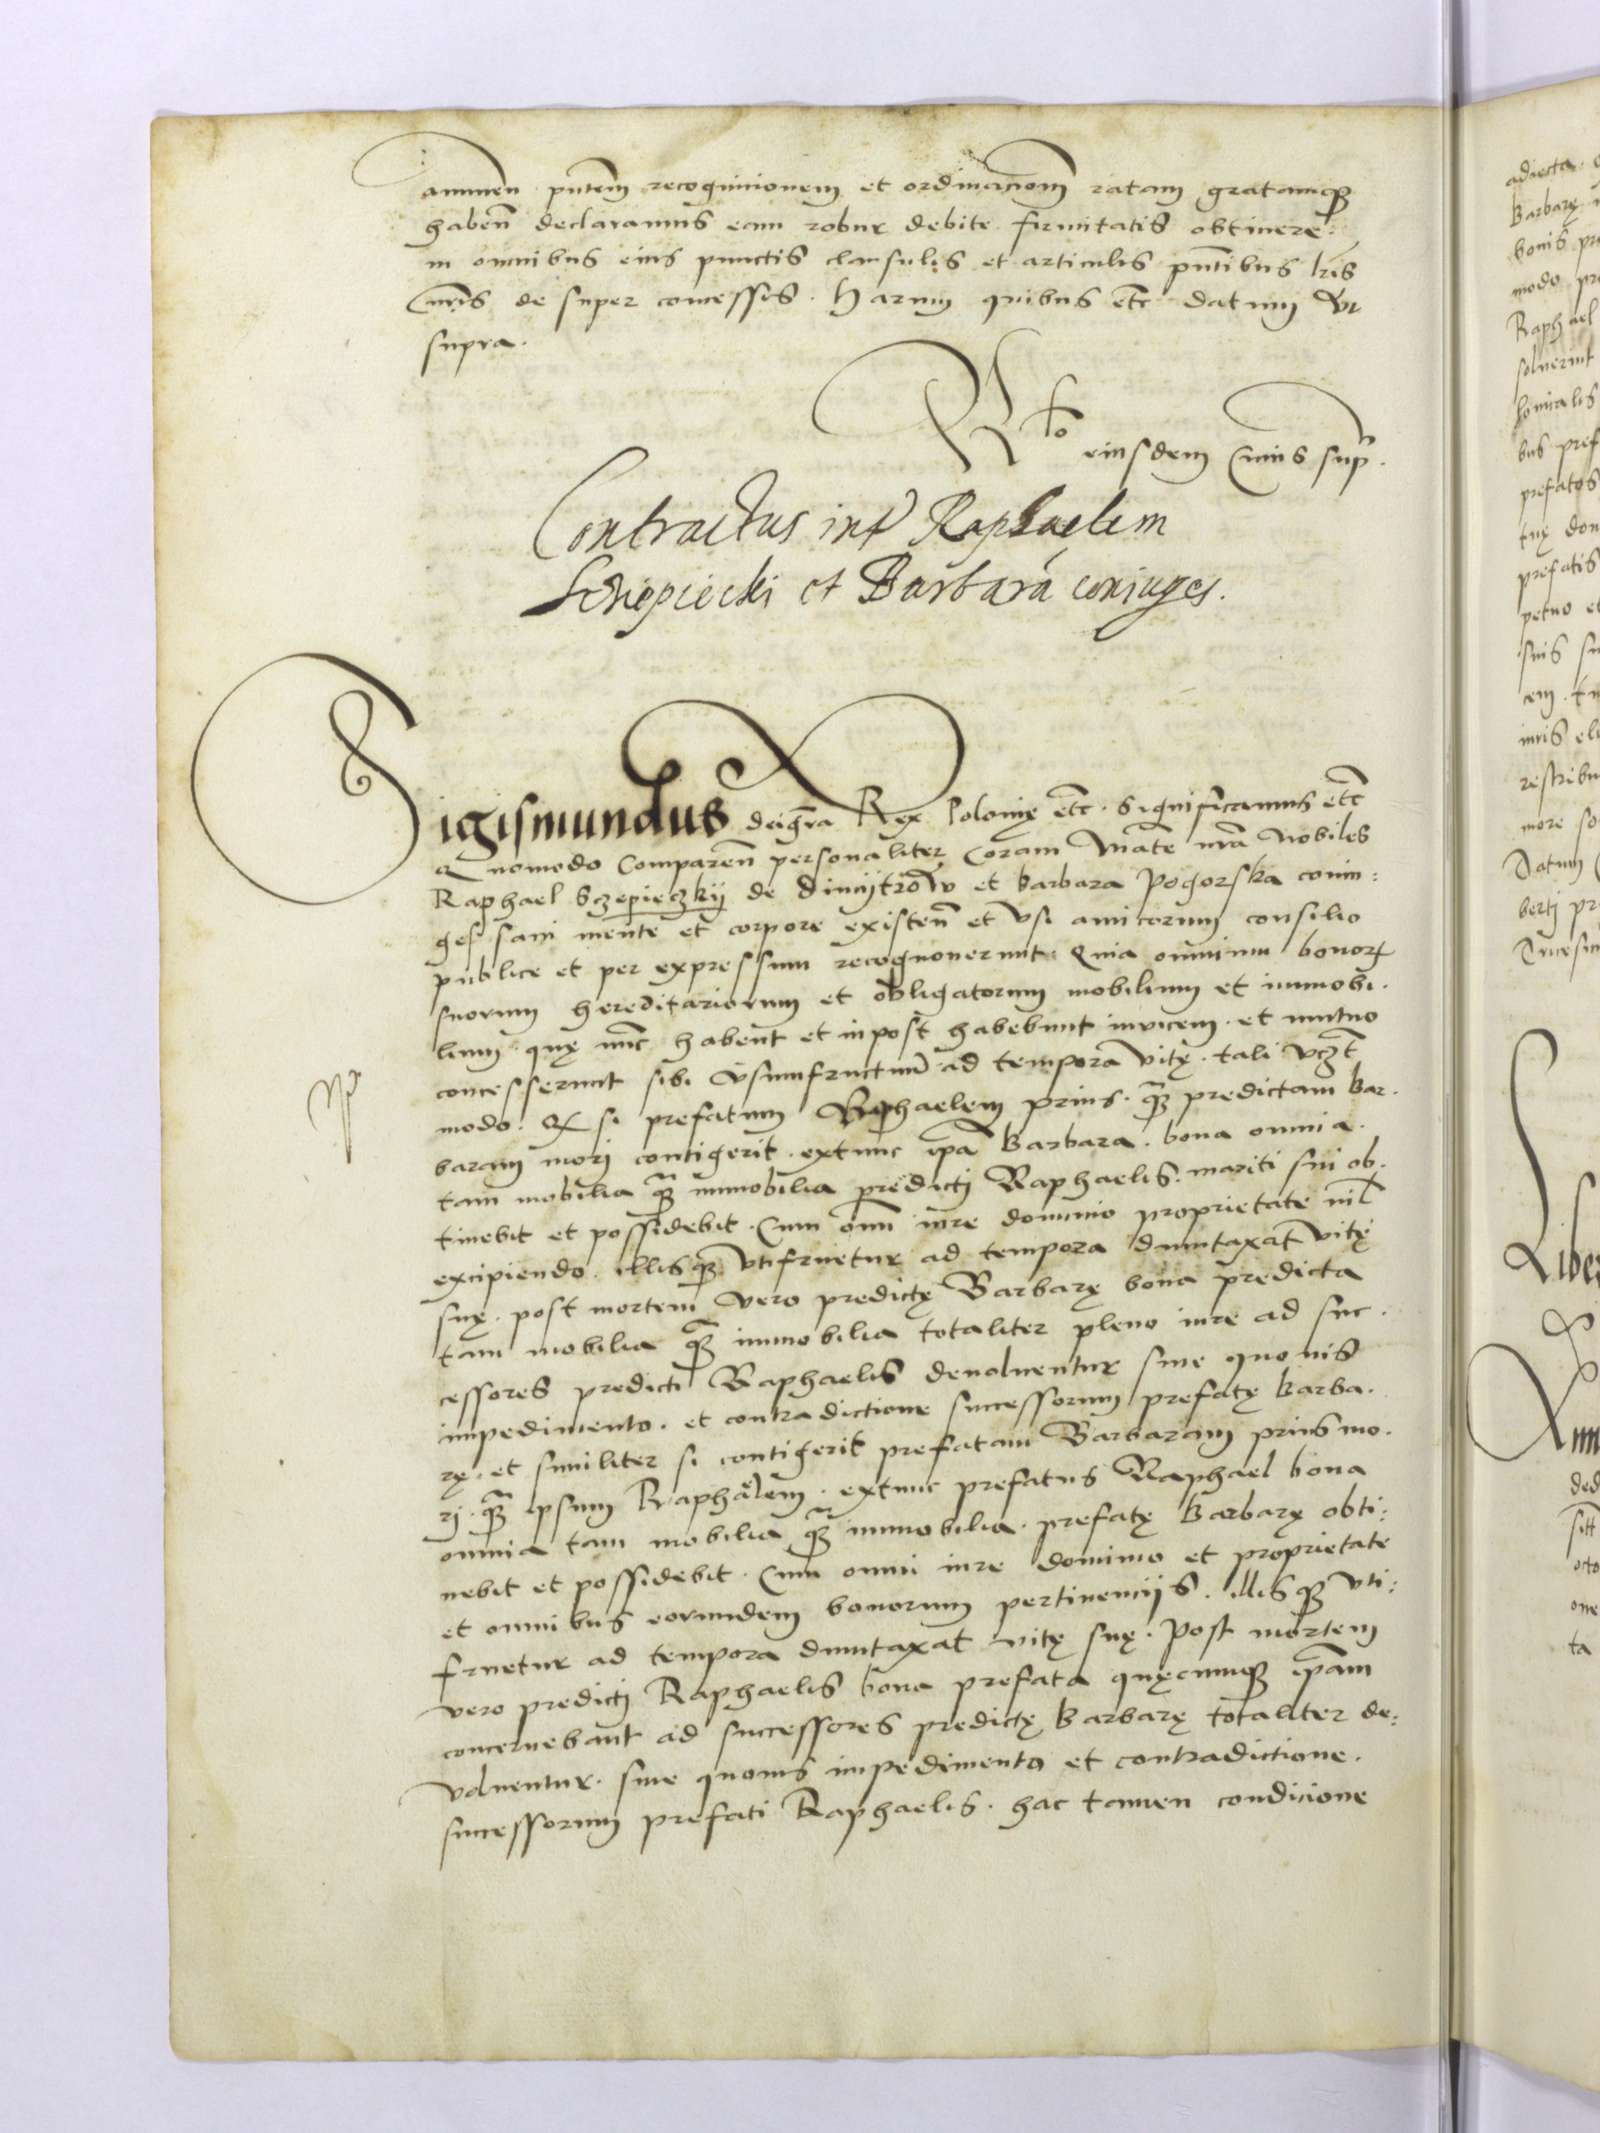 annuen pntem recognicionem et ordinacionem ratam gratamq3
haben declaramus eam robur debite firmitatis obtinere
in omnibus eius punctis clausulis et articulis pntibus lris
nris de super concessis. Harum quibus etc datum Vt
supra.
Rlo eiusdem Cuius sup.
Contractus int Raphaelem
Sczepiecki et Barbara coniuges.
Sigismundus dei gra Rex Polonię etc. Significamus etc
Quomodo Comparen personaliter Coram Mate nra Nobiles
Raphael Sczepięczkij de Dmijtrow et Barbara Pogorska coniu:
ges sani mente et corpore existen et Vsi amicorum consilio
publice et per expressum recognouerunt. Quia omnium bonor
suorum hereditariorum et obligatorum mobilium et immobi.
lium. quę nunc habent et inpost habebunt invicem. et mutuo
concesserunt sibi Vsumfructum ad tempora vitę. tali vczt
modo. Q si prefatum Raphaelem prius. q3 predictam Bar.
baram morj contigerit. extunc ipa Barbara. bona omnia.
tam mobilia q3 immobilia predictj Raphaelis. mariti sui ob.
tinebit et possidebit. Cum omni iure dominio proprietate nil
excipiendo. illisq3 vtifruetur ad tempora duntaxat vitę
suę. post mortem vero predictę Barbarę bona predicta
tam mobilia q3 immobilia totaliter pleno iure ad suc.
cessores predicti Raphaelis deuoluentur sine quouis
impedimento. et contradictione successorum prefatę Barba.
rę. et similiter si contigerit prefatam Barbaram prius mo.
rj. q3 ipsum Raphaelem. extunc prefatus Raphael bona
omnia tam mobilia q3 immobilia. prefatę Barbarę obti:
nebit et possidebit. Cum omni iure dominio et proprietate
et omnibus eorundem bonorum pertinencijs. illisq3 vti:
fruetur ad tempora duntaxat vitę suę. Post mortem
vero predictj Raphaelis bona prefata quęcumq3 ipam
concernebant ad successores predictę Barbarę totaliter de:
voluentur. sine quouis impedimento et contradictione.
successorum prefati Raphaelis. hac tamen condicione
adiecta.
Barbarę
bonis
modo
Raphael
soluerint
prefatos
prefatis
petuo et
suis
more
Datum